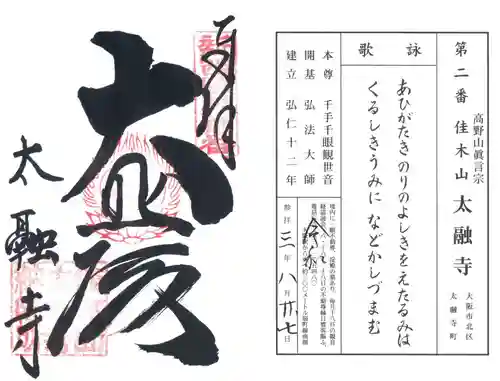 奉拝
大悲殿
太融寺
第二番
高野山眞言宗
佳木山 太融寺
大阪市北区
太融寺町
詠歌
あひがたきのりのよしきをえたるみは
くるしきうみに などかしづまむ
本尊 千手千眼観世音
開基 弘法大師
建立 弘仁十二年
参拝 令和三年八月廿七日